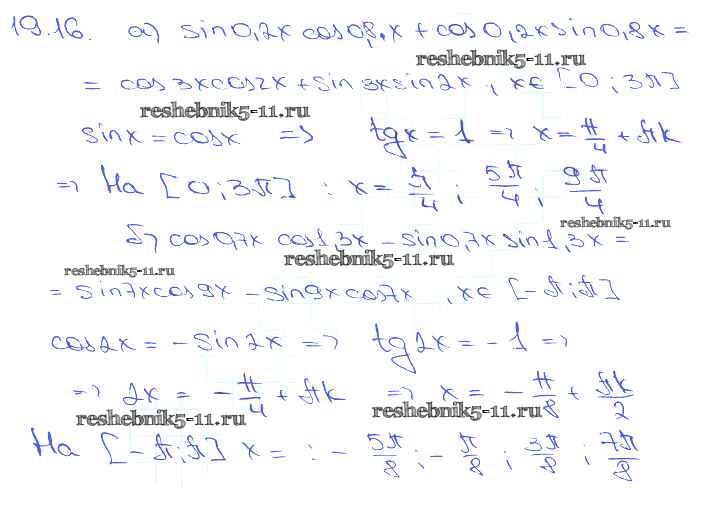 19.16. а) sin0,2x cos0,8x + cos0,2x sin0,8x =
reshebnik5-11.ru
= cos3x cos2x + sin3x sin2x, x∈ [0; 3π]
reshebnik5-11.ru
sinx = cosx => tgx = 1 => x = π/4 + πk
=> На [0; 3π] : x = π/4; 5π/4; 9π/4
reshebnik5-11.ru
б) cos0,7x cos1,3x - sin0,7x sin1,3x =
reshebnik5-11.ru
reshebnik5-11.ru
= sin7xcos9x - sin9xcos7x, x∈ [-π; π]
cos2x = -sin2x => tg2x = -1 =>
=> 2x = -π/4 + πk => x = -π/8 + πk/2
reshebnik5-11.ru reshebnik5-11.ru
На [-π; π] x = : -5π/8; -π/8; 3π/8; 7π/8